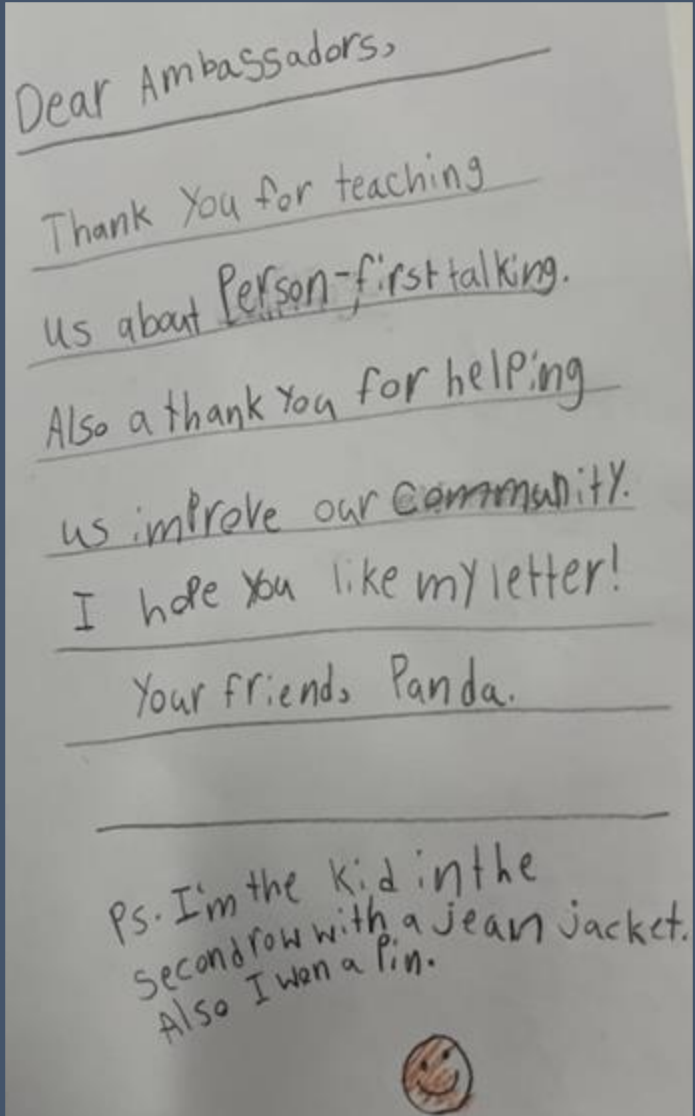 Dear Ambassadors,
Thank You for teaching
us about Person-first talking.
Also a thank You for helping
us improve our Community.
I hope you like my letter!
Your friend, Panda.
Ps. I'm the kid in the
second row with a jean jacket.
Also I won a Pin.